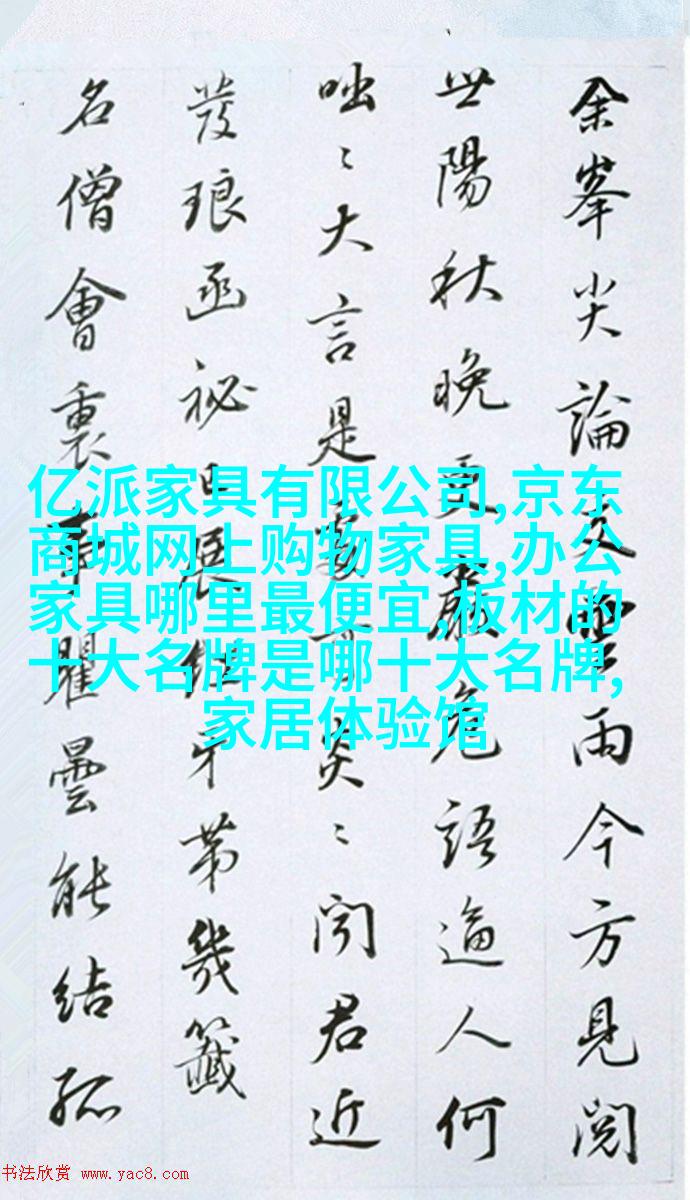 余峯尖論文雨今方見閲
世陽秋晚更嚴危語逼人何
咄〻大言是炎〻聞君近
發琅函祕日展牙第幾籤
名僧會裏瞿曇能結孤
亿派家具有限公司,京东
商城网上购物家具,办公
家具哪里最便宜,板材的
十大名牌是哪十大名牌,
家居体验馆
书法欣赏 www.yac8.com